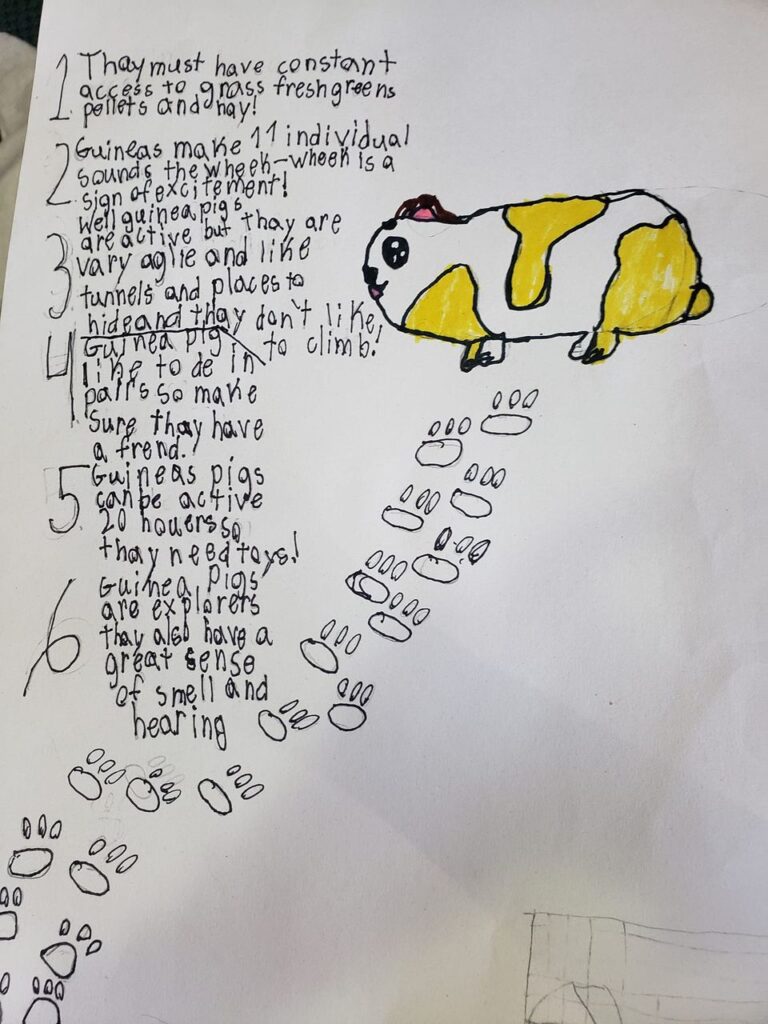 1 Thay must have constant
access to grass fresh greens
pellets and hay!
2 Guineas make 11 individual
sounds the wheek-wheek is a
sign of excitement!
3 Well guinea pigs
are active but thay are
vary aglie and like
tunnels and places to
hide and thay don't like
to climb!
4 Guinea pig
like to de in
pairs so make
Sure thay have
a frend!
5 Guineas pigs
can be active
20 houers so
thay need toys!
6 Guinea Pigs
are explorers
thay also have a
great sense
of smell and
hearing